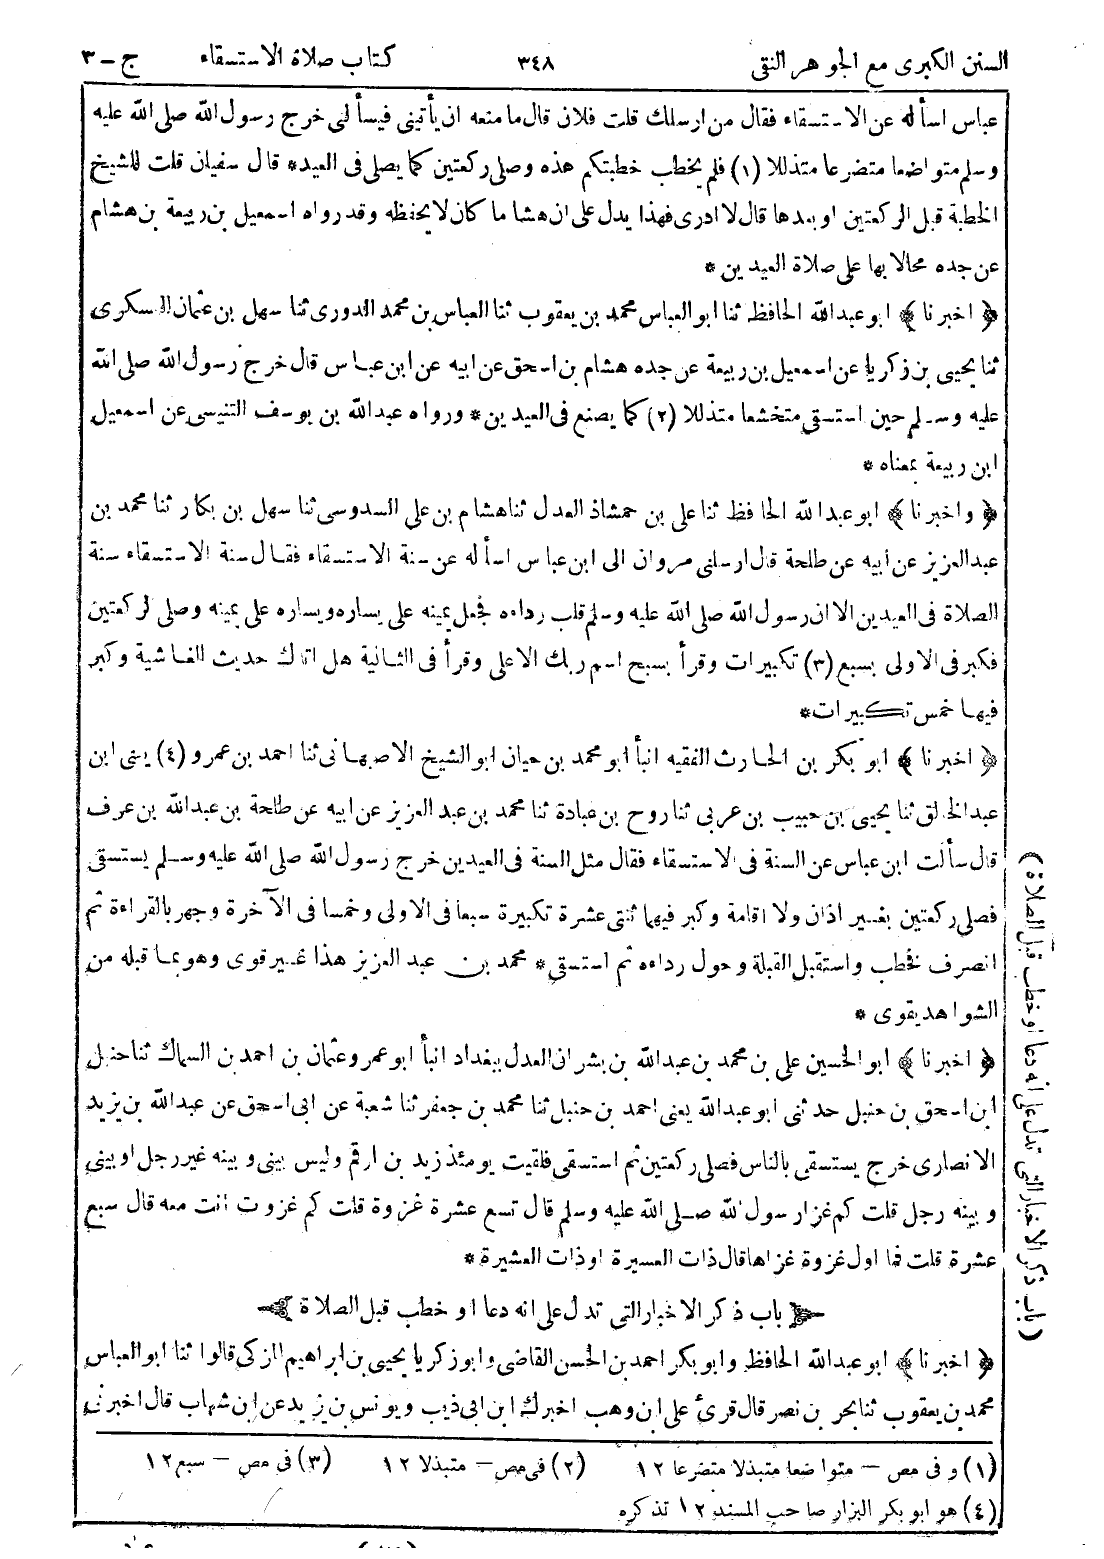 السنن الكبرى مع الجوهر النقى ٣٤٨ كتاب صلاة الاستسقاء ج - ٣
عباس اسأله عن الاستسقاء فقال من ارسلك قلت فلان قال ما منعه ان يأتينى فيسألنى خرج رسول الله صلى الله عليه
وسلم متواضعا متضرعا متذللا (١) فلم يخطب خطبتكم هذه وصلى ركعتين كما يصلى فى العيد* قال سفيان قلت للشيخ
الخطبة قبل الركعتين او بعدها قال لا ادرى فهذا يدل على ان هشاما كان لا يحفظه وقد رواه اسمعيل بن ربيعة بن هشام
عن جده محالا بها على صلاة العيدين *
﴿ اخبرنا ﴾ ابو عبدالله الحافظ ثنا ابو العباس محمد بن يعقوب ثنا العباس بن محمد الدورى ثنا سهل بن عثمان السكرى
ثنا يحيى بن زكريا عن اسمعيل بن ربيعة عن جده هشام بن اسحق عن ابيه عن ابن عباس قال خرج رسول الله صلى الله
عليه وسلم حين استسقى متخشعا متذللا (٢) كما يصنع فى العيدين* ورواه عبدالله بن يوسف التنيسى عن اسمعيل
ابن ربيعة بمعناه *
﴿ واخبرنا ﴾ ابو عبدالله الحافظ ثنا على بن حمشاذ العدل ثنا هشام بن على السدوسى ثنا سهل بن بكار ثنا محمد بن
عبدالعزيز عن ابيه عن طلحة قال ارسلنى مروان الى ابن عباس اسأله عن سنة الاستسقاء فقال سنة الاستسقاء سنة
الصلاة فى العيدين الا ان رسول الله صلى الله عليه وسلم قلب رداءه فجعل يمينه على يساره ويساره على يمينه وصلى لركعتين
فكبر فى الاولى بسبع (٣) تكبيرات وقرأ بسبح اسم ربك الاعلى وقرأ فى الثانية هل اتاك حديث الغاشية وكبر
فيها خمس تكبيرات*
﴿ اخبرنا ﴾ ابو بكر بن الحارث الفقيه انبأ ابو محمد بن حيان ابو الشيخ الاصبهانى ثنا احمد بن عمرو (٤) يعنى ابن
عبدالخالق ثنا يحيى بن حبيب بن عربى ثنا روح بن عبادة ثنا محمد بن عبد العزيز عن ابيه عن طلحة بن عبدالله بن عوف
قال سألت ابن عباس عن السنة فى الاستسقاء فقال مثل السنة فى العيدين خرج رسول الله صلى الله عليه وسلم يستسقى
فصلى ركعتين بغير اذان ولا اقامة وكبر فيها ثنتى عشرة تكبيرة سبعا فى الاولى وخمسا فى الآخرة وجهر بالقراءة ثم
انصرف فخطب واستقبل القبلة وحول رداءه ثم استسقى* محمد بن عبد العزيز هذا غير قوى وهو بما قبله من
الشواهد يقوى *
﴿ اخبرنا ﴾ ابو الحسين على بن محمد بن عبدالله بن بشران العدل ببغداد انبأ ابو عمرو عثمان بن احمد بن السماك ثنا حنبل
ابن اسحق بن حنبل حدثنى ابو عبدالله يعنى احمد بن حنبل ثنا محمد بن جعفر ثنا شعبة عن ابى اسحق عن عبدالله بن يزيد
الانصارى خرج يستسقى بالناس فصلى ركعتين ثم استسقى فلقيت يومئذ زيد بن ارقم وليس بينى وبينه غير رجل او بينى
وبينه رجل قلت كم غزا رسول الله صلى الله عليه وسلم قال تسع عشرة غزوة قلت كم غزوت انت معه قال سبع
عشرة قلت فما اول غزوة غزاها قال ذات العسيرة او ذات العشيرة *
باب ذكر الاخبار التى تدل على انه دعا او خطب قبل الصلاة
﴿ اخبرنا ﴾ ابو عبدالله الحافظ وابو بكر احمد بن الحسن القاضى وابو زكريا يحيى بن ابراهيم المزكى قالوا ثنا ابو العباس
محمد بن يعقوب ثنا بحر بن نصر قال قرئ على ابن وهب اخبرك ابن ابى ذيب ويونس بن يزيد عن ابن شهاب قال اخبرنى
(باب ذكر الاخبار التى تدل على انه دعا او خطب قبل الصلاة)
(١) وفى مص - متواضعا متبذلا متضرعا ١٢ (٢) فى مص - متبذلا ١٢ (٣) فى مص - سبع ١٢
(٤) هو ابو بكر البزار صاحب المسند ١٢ تذكره